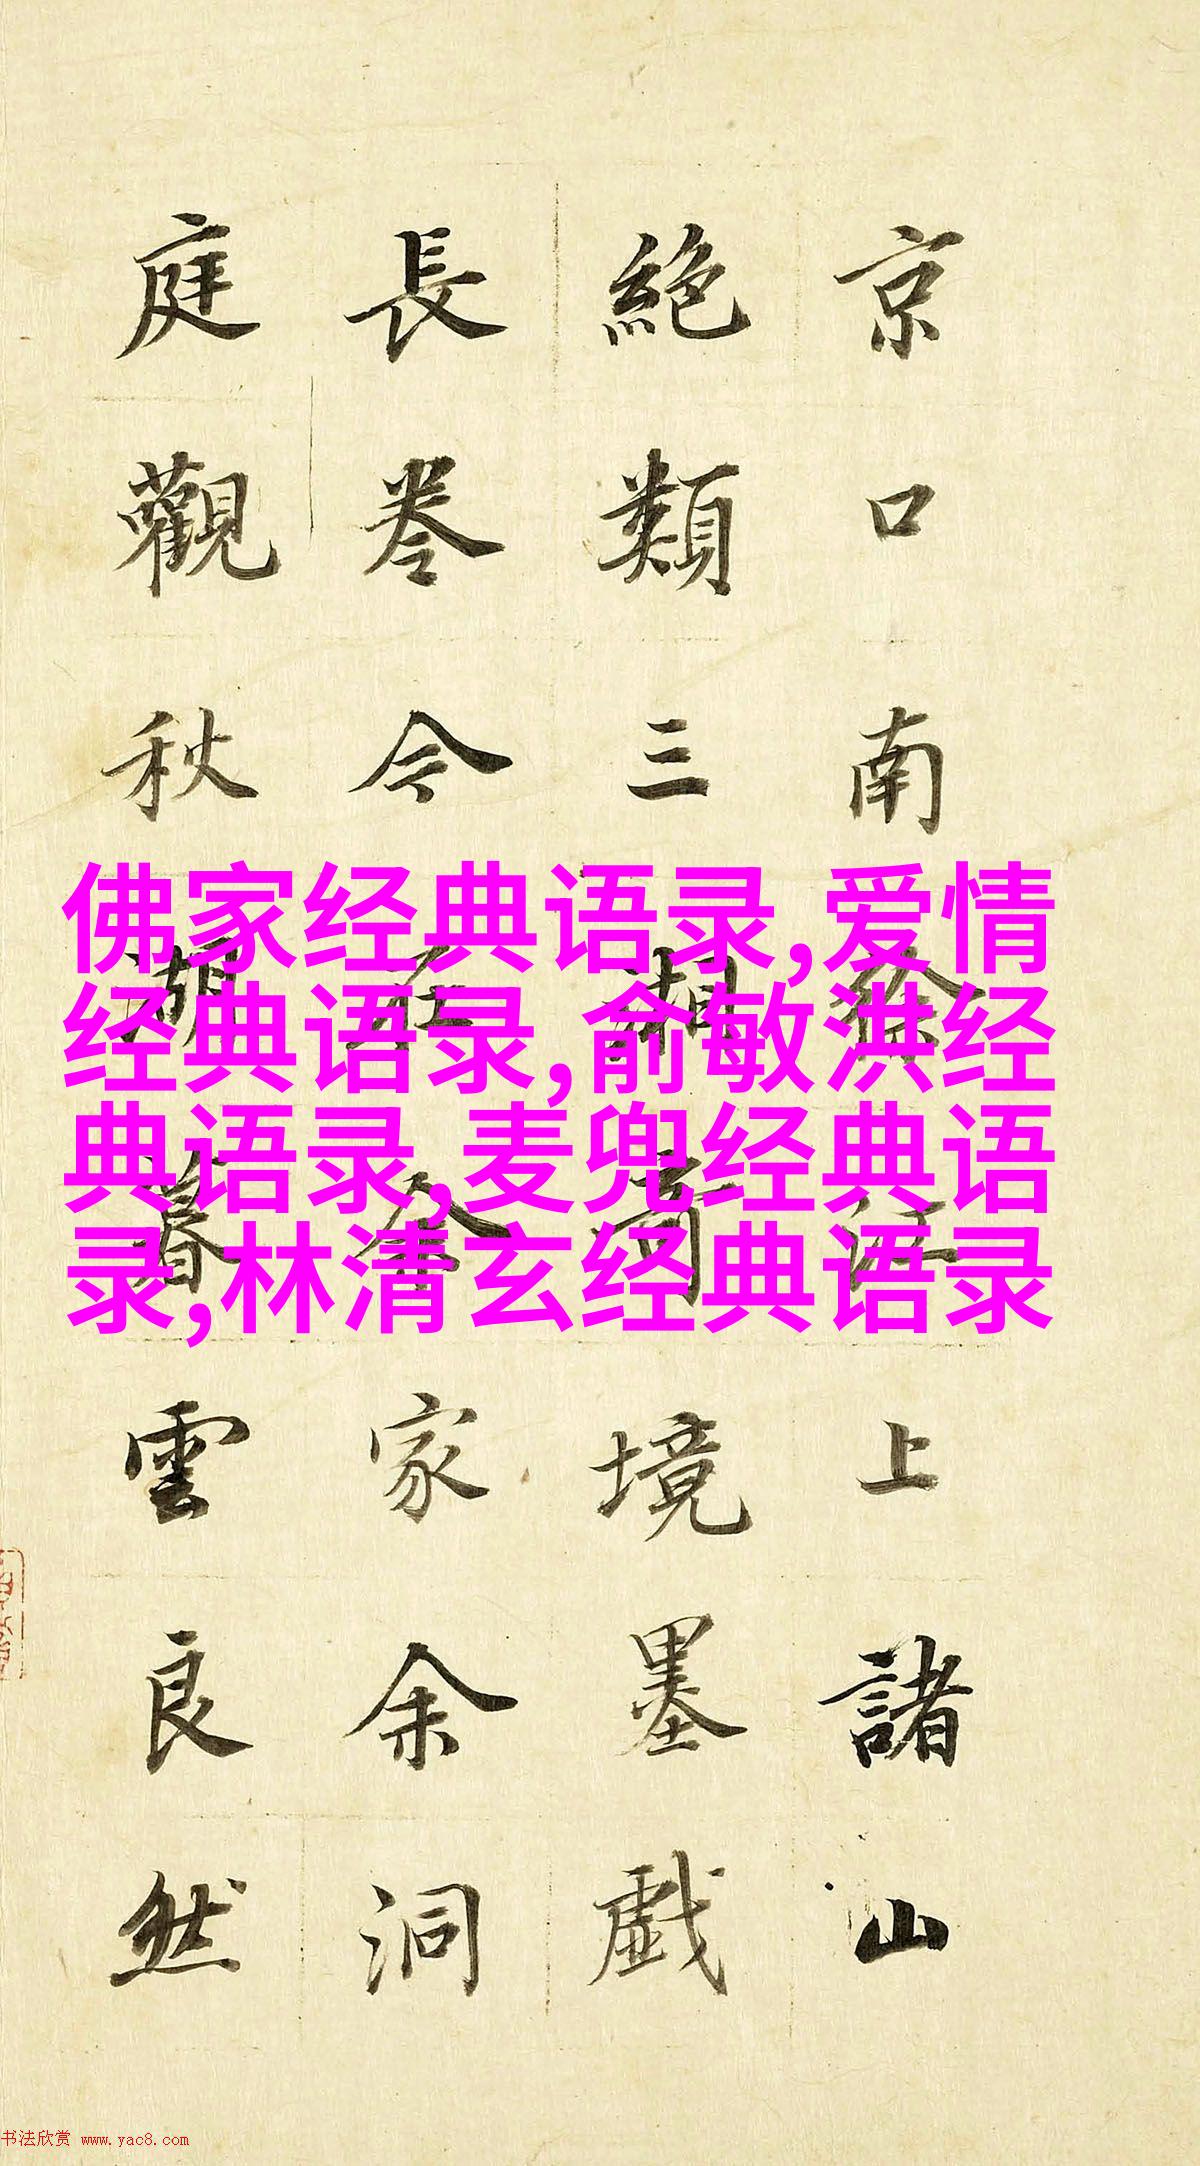 京口南徐江上諸山
絕類三湘奇境墨戯
長卷今在余家余洞
庭觀秋湖暮雲良然
佛家经典语录,爱情
经典语录,俞敏洪经
典语录,麦兜经典语
录,林清玄经典语录
书法欣赏 www.yac8.com